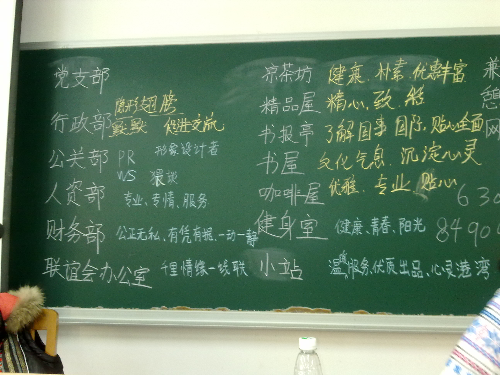 党支部
隐形翅膀
行政部 默默 促进交流
公关部 PR 形象设计者
VS 狠谈
人资部 专业、专情、服务
财务部 公正无私、有凭有据、一动一静
联谊会办公室 千里情缘一线联
凉茶坊 健康、朴素、优鲜丰富
精品屋 精心、致
书报亭 了解国事国际、贴心全面
书屋 文化气息、沉淀心灵
咖啡屋 优雅、专业、贴心
健身室 健康、青春、阳光
小站 温馨服务、优质出品、心灵港湾
兼
网
630
8490